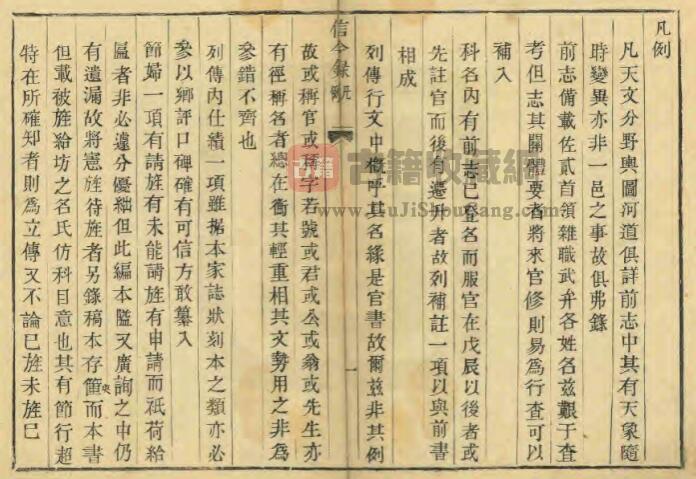 凡例
凡天文分野輿圖河道俱詳前志中其有天象隨
時變異亦非一邑之事故俱弗錄
前志備載佐貳首領雜職武弁各姓名茲艱于查
考但志其關體要者將來官修則易爲行查可以
補入
科名內有前志已登名而服官在戊辰以後者或
先註官而後有遷升者故列補註一項以與前書
相成
列傳行文中槪呼其名緣是官書故爾茲非其例
信今錄 凡例 一
故或稱官或稱字若號或君或公或翁或先生亦
有徑稱名者總在衡其輕重相其文勢用之非爲
參錯不齊也
列傳內仕績一項雖據本家誌狀刻本之類亦必
參以鄉評口碑確有可信方敢纂入
節婦一項有請旌有未能請旌有申請而祇荷給
匾者非必遽分優絀但此編本隘又廣詢之中仍
有遺漏故將憲旌待旌者另錄稿本存篋而本書
但載被旌給坊之名氏仿科目意也其有節行超
特在所確知者則爲立傳又不論已旌未旌已
古籍收藏網
www.GuJiShouCang.com
古籍